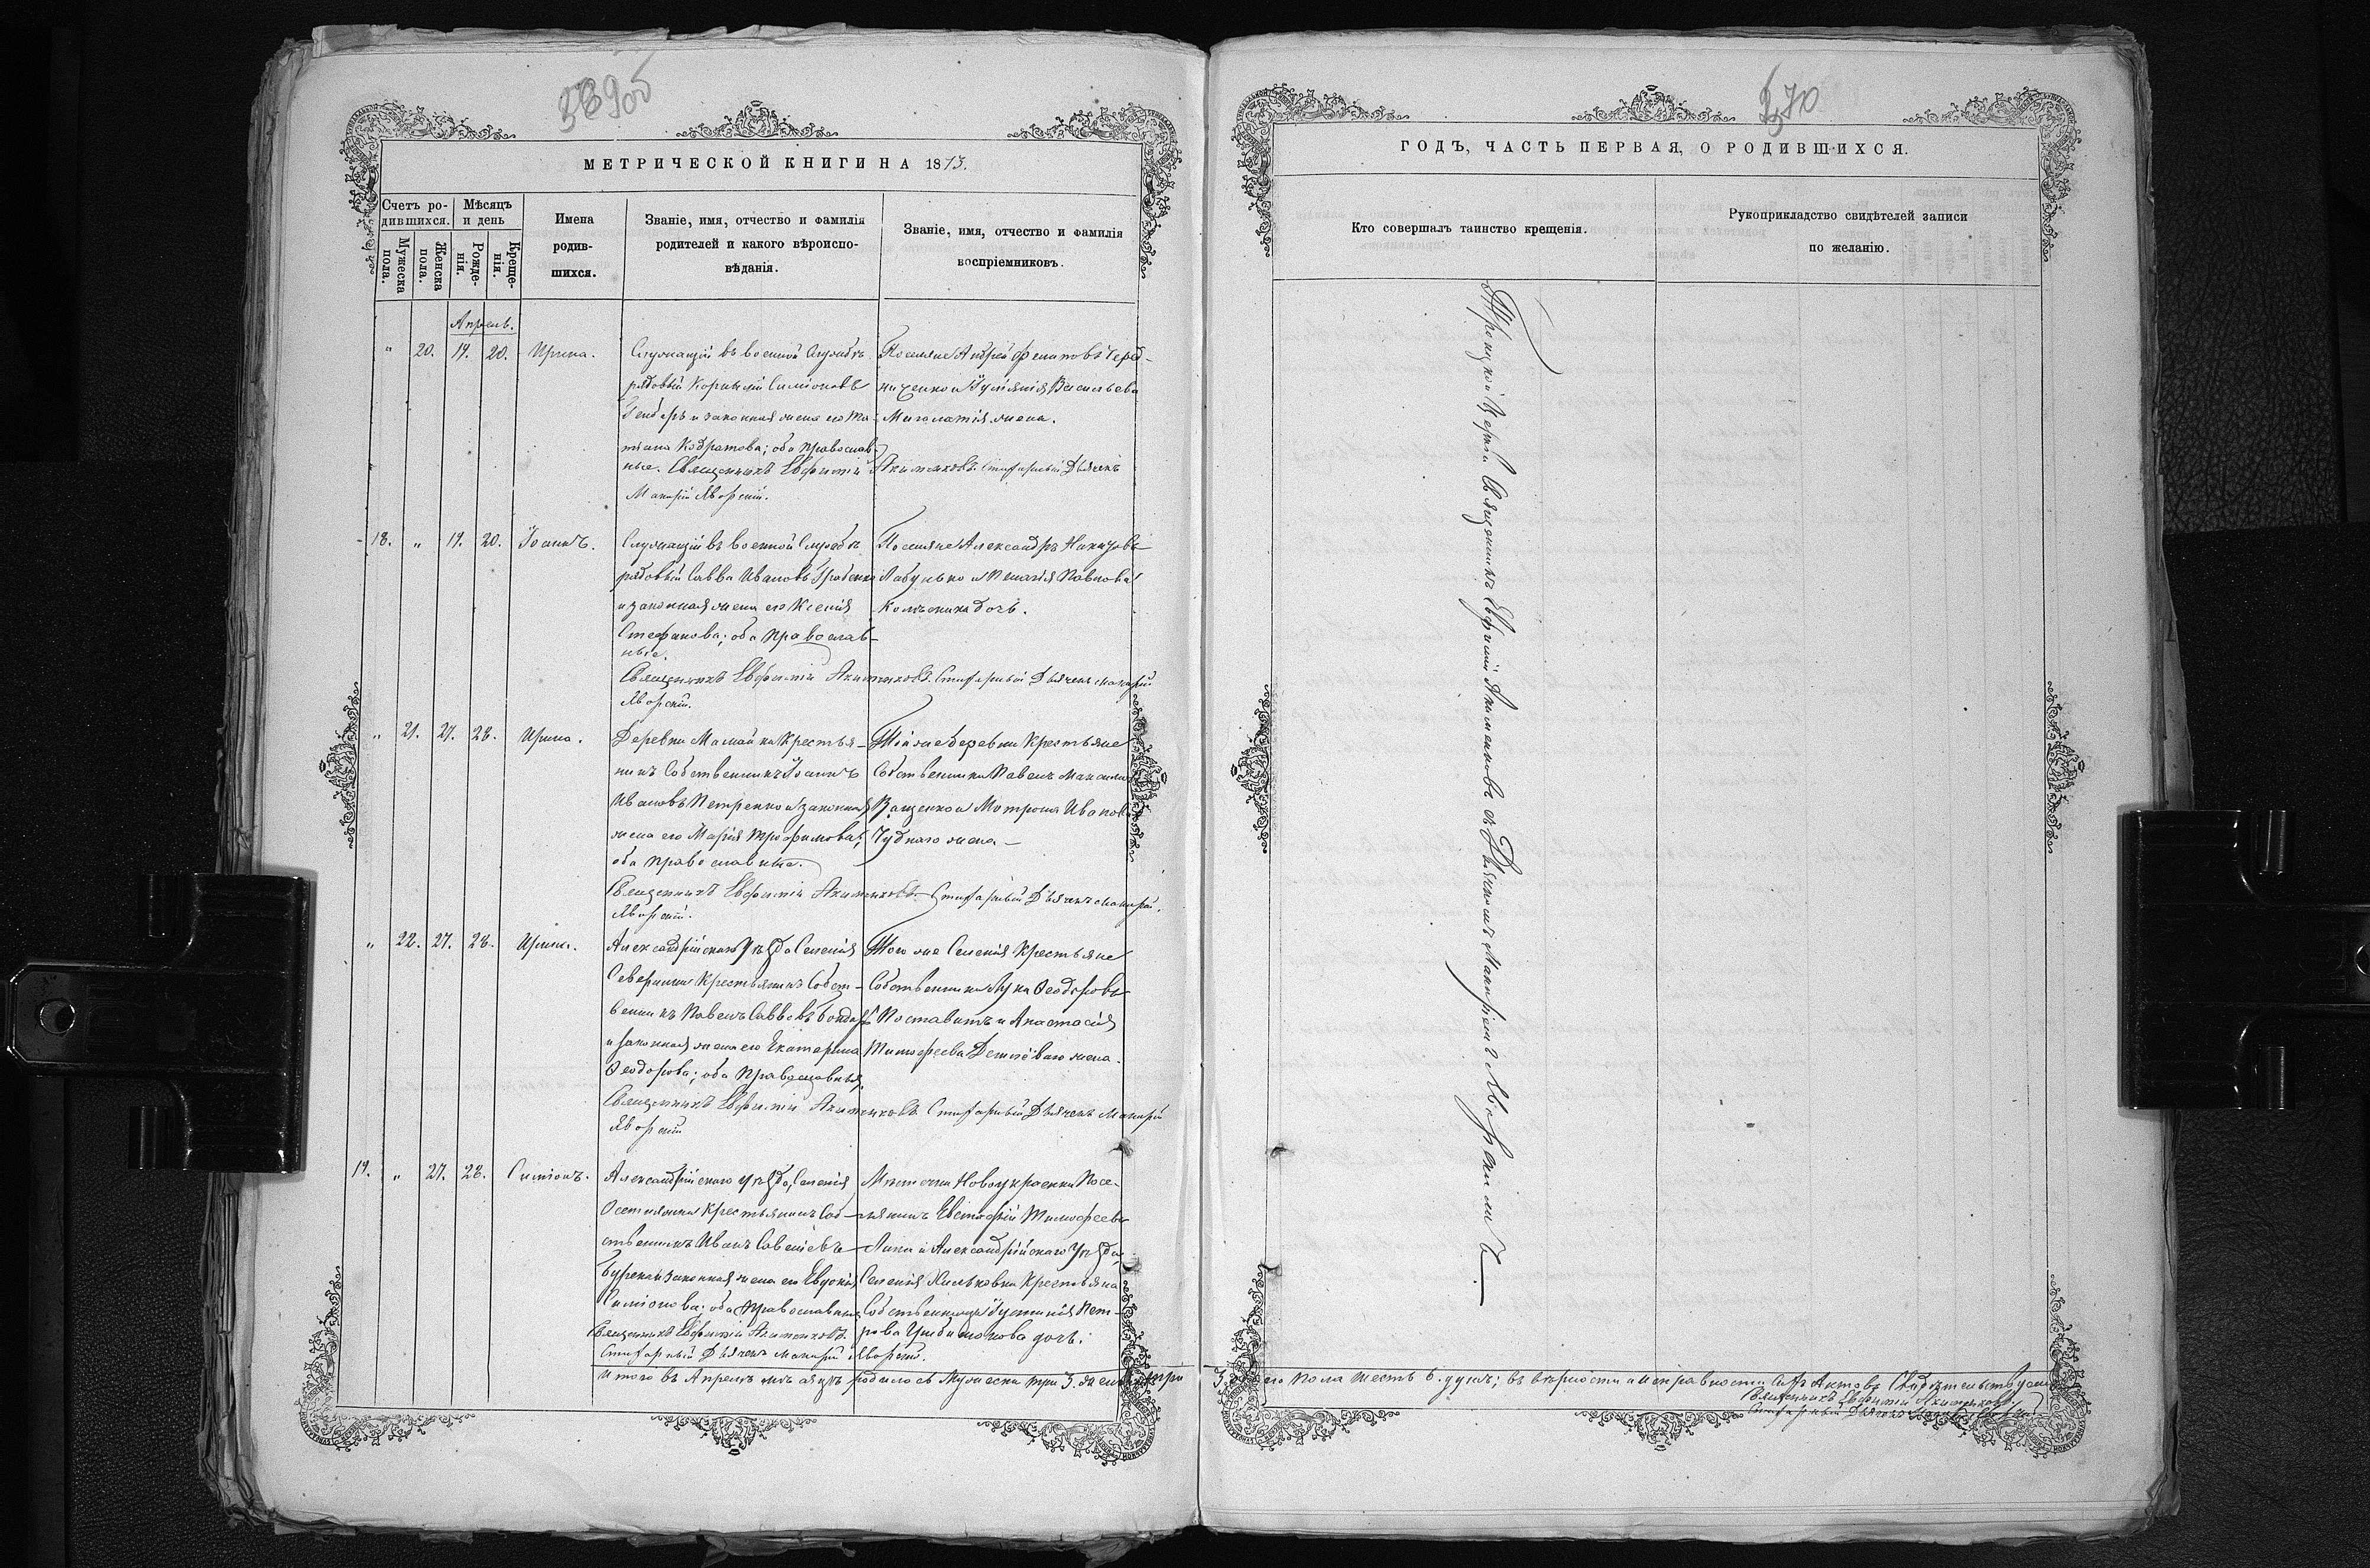 МЕТРИЧЕСКОЙ КНИГИ НА 1873.
Счетъ ро-
дившихся.
Мѣсяцъ
и день
Мужеска
пола.
Женска
пола.
Рожде-
нія.
Креще-
нія.
Имена
родив-
шихся.
Званіе, имя, отчество и фамилія
родителей и какого вѣроиспо-
вѣданія.
Званіе, имя, отчество и фамилія
воспріемниковъ.
Апрель.
" 20. 19. 20. Ирина.
Служащій въ военной службѣ
рядовый Корнилій Симіоновъ
и законная жена его Та-
тіана Кодратова; оба православ-
ные. Священникъ Евфимій Акименковъ. Стихарный Дьячекъ
Макарій Яворскій.
Поселяне Андрей Филиповъ Черед-
ниченко и Іуліанія Васильева
жена.
18. " 19. 20. Іоаннъ.
Служащій въ военной службѣ
рядовый Савва Ивановъ Гробенко
и законная жена его Ксенія
Стефанова; оба православ-
ные.
Священникъ Евфимій Акименковъ. Стихарный Дьячекъ Макарій
Яворскій.
Поселяне Александръ
Лабунько и Пелагія Павлова
дочь.
" 21. 27. 28. Ирина.
Деревни Мамайки Крестья-
нинъ Собственникъ Іоаннъ
Ивановъ Петренко и законная
жена его Марія Трофимова;
оба православные.
Священникъ Евфимій Акименковъ. Стихарный Дьячекъ Макарій
Яворскій.
Той же деревни Крестьяне
Собственники Павелъ
Ващенко и Мотрона Иванова
Чуднаго жена
" 22. 27. 28. Ирина.
Александрійскаго Уѣзда Селенія
Северинки Крестьянинъ Собст-
венникъ Павелъ Саввовъ Бондарь
и законная жена его Екатерина
Ѳеодорова; оба Православныя.
Священникъ Евфимій Акименковъ Стихарный Дьячекъ Макарій
Яворскій
Того же Селенія Крестьяне
Собственники Лука Ѳеодоровъ
и Анастасія
Тимофеева жена.
19. " 27. 28. Симіонъ.
Александрійскаго уѣзда, Селенія
Крестьянинъ Соб-
ственникъ Иванъ
и законная жена его Евдокія
Симіонова; оба Православные
Священникъ Евфимій Акименковъ.
Стихарный Дьячекъ Макарій Яворскій.
Мѣстечка Новоукраинки Посе-
лянинъ Евстафій Тимофеевъ
и Александрійскаго Уѣзда,
Селенія Крестьянка
Собственница Іустинія Пет-
рова дочь.
Итого въ Апрелѣ мѣсяцѣ родилось Мужеска три 3. женска три
ГОДЪ, ЧАСТЬ ПЕРВАЯ, О РОДИВШИХСЯ.
Кто совершалъ таинство крещенія.
Рукоприкладство свидѣтелей записи
по желанію.
Троицкой Церкви Священникъ Евфимій Акименковъ съ Дьячкомъ Макаріемъ Яворскимъ
3. пола шесть 6. душъ; въ вѣрности и исправности сихъ Актовъ Свидѣтельствуемъ
Священникъ Евфимій Акименковъ.
Стихарный Дьячекъ
370